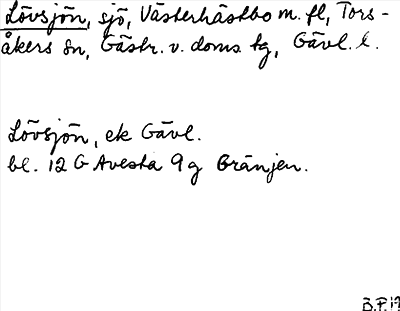 Lövsjön, sjö, Västerhästbo m. fl, Tors-
åkers sn, Gästr. v. doms tg, Gävl. l.
Lövsjön, ek Gävl.
bl. 12 G Avesta 9 g Gränjen.
B.P.